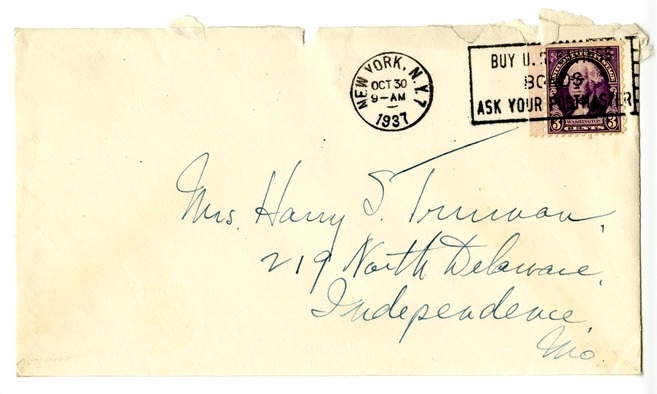 NEW YORK, N.Y. 7
OCT 30
9-AM
1937
BUY U.S.
BONDS
ASK YOUR POSTMASTER
WASHINGTON
3 CENTS 3
Mrs. Harry S. Truman,
219 North Delaware,
Independence,
Mo.